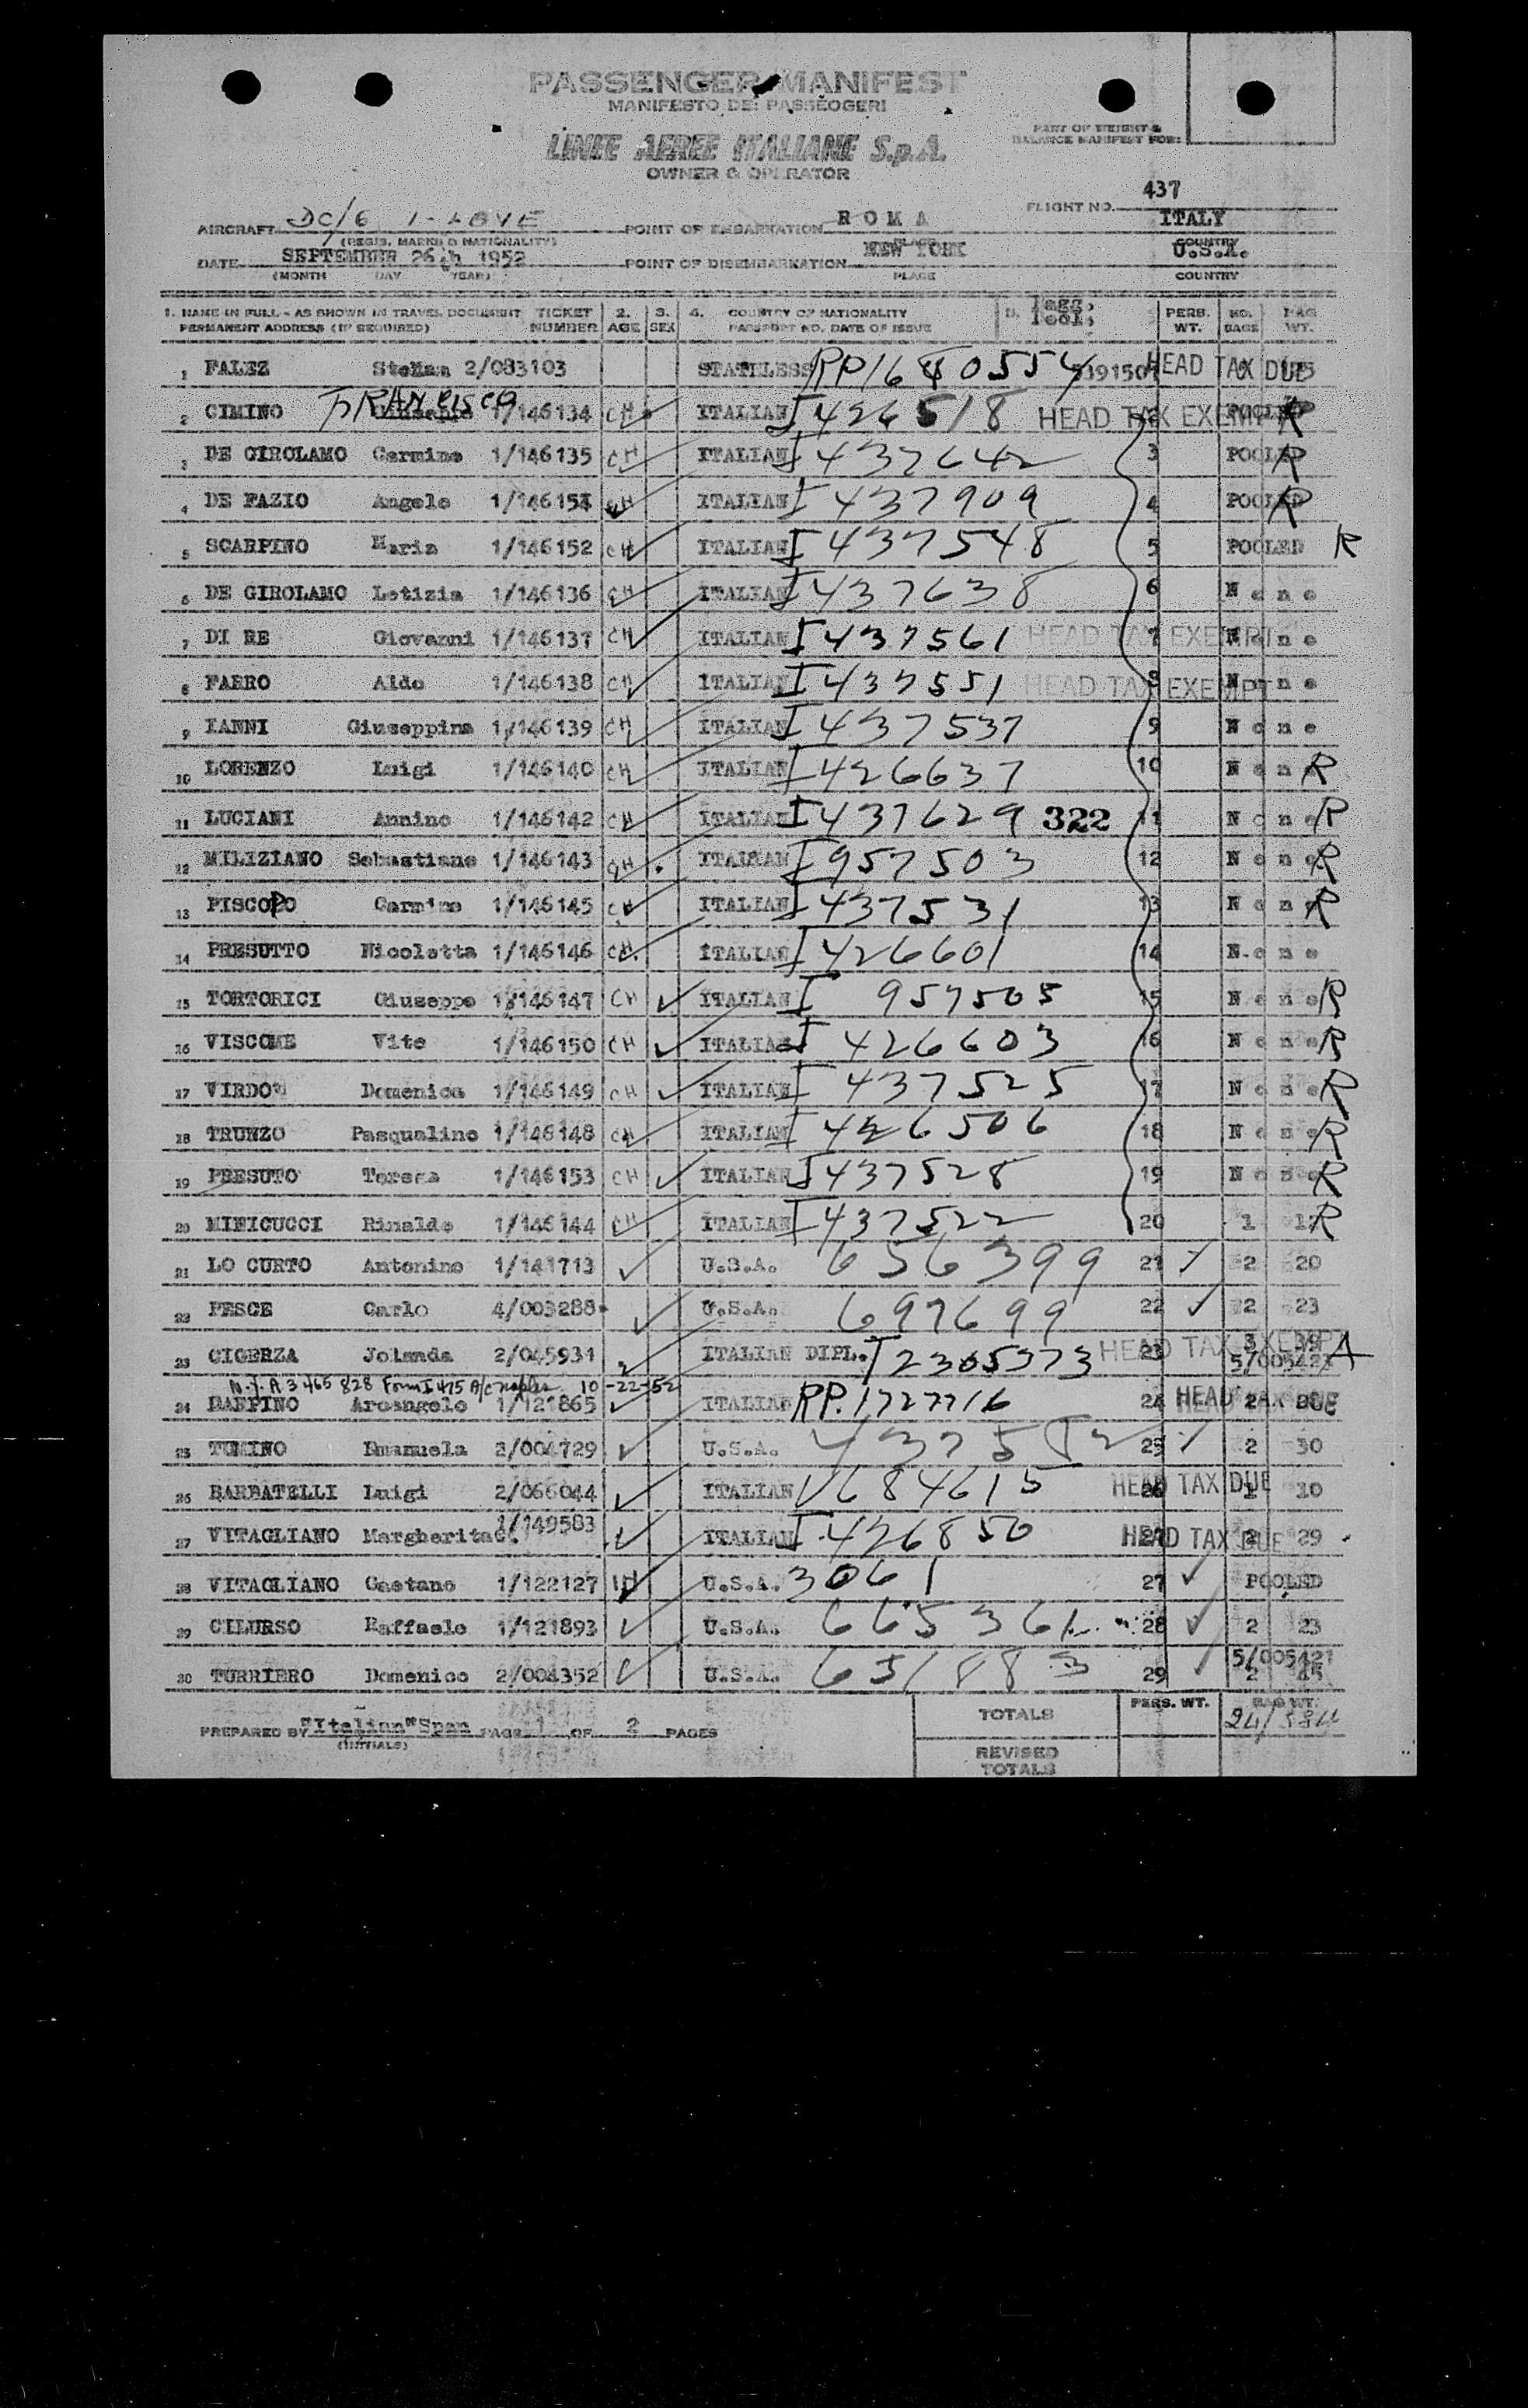 PASSENGER MANIFEST
MANIFESTO DEI PASSEOGERI
PART OF WEIGHT &
BALANCE MANIFEST FOR:
LINEE AEREE ITALIANE S.p.A.
OWNER & OPERATOR
FLIGHT NO. 437
AIRCRAFT DC/6 I-LOVE POINT OF EMBARKATION ROMA ITALY
(REGIS. MARKS & NATIONALITY) PLACE COUNTRY
DATE SEPTEMBER 26th 1952 POINT OF DISEMBARKATION NEW YORK U.S.A.
(MONTH DAY YEAR) PLACE COUNTRY
1. NAME IN FULL - AS SHOWN IN TRAVEL DOCUMENT TICKET 2. 3. 4. COUNTRY OF NATIONALITY PERS. NO. BAG
PERMANENT ADDRESS (IF REQUIRED) NUMBER AGE SEX PASSPORT NO. DATE OF ISSUE WT. BAGS WT.
1 FALEZ 2/083103 STATELESS RP1680554 HEAD TAX DUE
FRANCISCO
2 CIMINO 1/146134 CH ITALIAN I426518 HEAD TAX EXEMPT POOLED R
3 DE GIROLAMO Carmine 1/146135 CH ITALIAN I437642 3 POOLED R
4 DE FAZIO Angelo 1/146154 CH ITALIAN I437909 4 POOLED R
5 SCARPINO Maria 1/146152 CH ITALIAN I437548 5 POOLED R
6 DE GIROLAMO Letizia 1/146136 CH ITALIAN I437638 6 None
7 DI RE Giovanni 1/146137 CH ITALIAN I437561 HEAD TAX EXEMPT 7 None
8 FABRO Aldo 1/146138 CH ITALIAN I437551 HEAD TAX EXEMPT 8 None
9 IANNI Giuseppina 1/146139 CH ITALIAN I437537 9 None
10 LORENZO Luigi 1/146140 CH ITALIAN I426637 10 None R
11 LUCIANI Annino 1/146142 CH ITALIAN I437629 322 11 None R
12 MILIZIANO Sebastiano 1/146143 CH ITALIAN I957503 12 None R
13 PISCOPO Carmine 1/146145 CH ITALIAN I437531 13 None R
14 PRESUTTO Nicoletta 1/146146 CH ITALIAN I426601 14 None
15 TORTORICI Giuseppe 1/146147 CH ITALIAN I 957505 15 None R
16 VISCOME Vito 1/146150 CH ITALIAN I 426603 16 None R
17 VIRDO Domenica 1/146149 CH ITALIAN I 437525 17 None R
18 TRUNZO Pasqualino 1/146148 CH ITALIAN I 426506 18 None R
19 PRESUTO Teresa 1/146153 CH ITALIAN I437528 19 None R
20 MINICUCCI Rinaldo 1/146144 CH ITALIAN I437522 20 1 12 R
21 LO CURTO Antonino 1/141713 U.S.A. 656399 21 2 20
22 PESCE Carlo 4/003288 U.S.A. 697699 22 2 23
23 CICERZA Jolanda 2/045931 ITALIAN DIPL. I2305373 HEAD TAX EXEMPT 23 3 39 A
5/005427
N.Y. A3465828 Form I475 A/c Naples 10-22-52
24 Arcangelo 1/121865 ITALIAN RP.1727716 24 HEAD TAX DUE
25 TUMINO Emanuela 2/004729 U.S.A. 25 2 30
26 BARBATELLI Luigi 2/066044 ITALIAN V684615 HEAD TAX DUE 10
27 VITAGLIANO Margherita 1/149583 ITALIAN I.426850 HEAD TAX DUE 29
28 VITAGLIANO Gaetano 1/122127 U.S.A. 3061 27 POOLED
29 CILURSO Raffaele 1/121893 U.S.A. 665361 28 2 23
5/005427
30 TURRIERO Domenico 2/004352 U.S.A. 651883 29 2
PREPARED BY "Italian" Span PAGE 1 OF 2 PAGES TOTALS PERS. WT. BAG WT.
(INITIALS)
REVISED
TOTALS